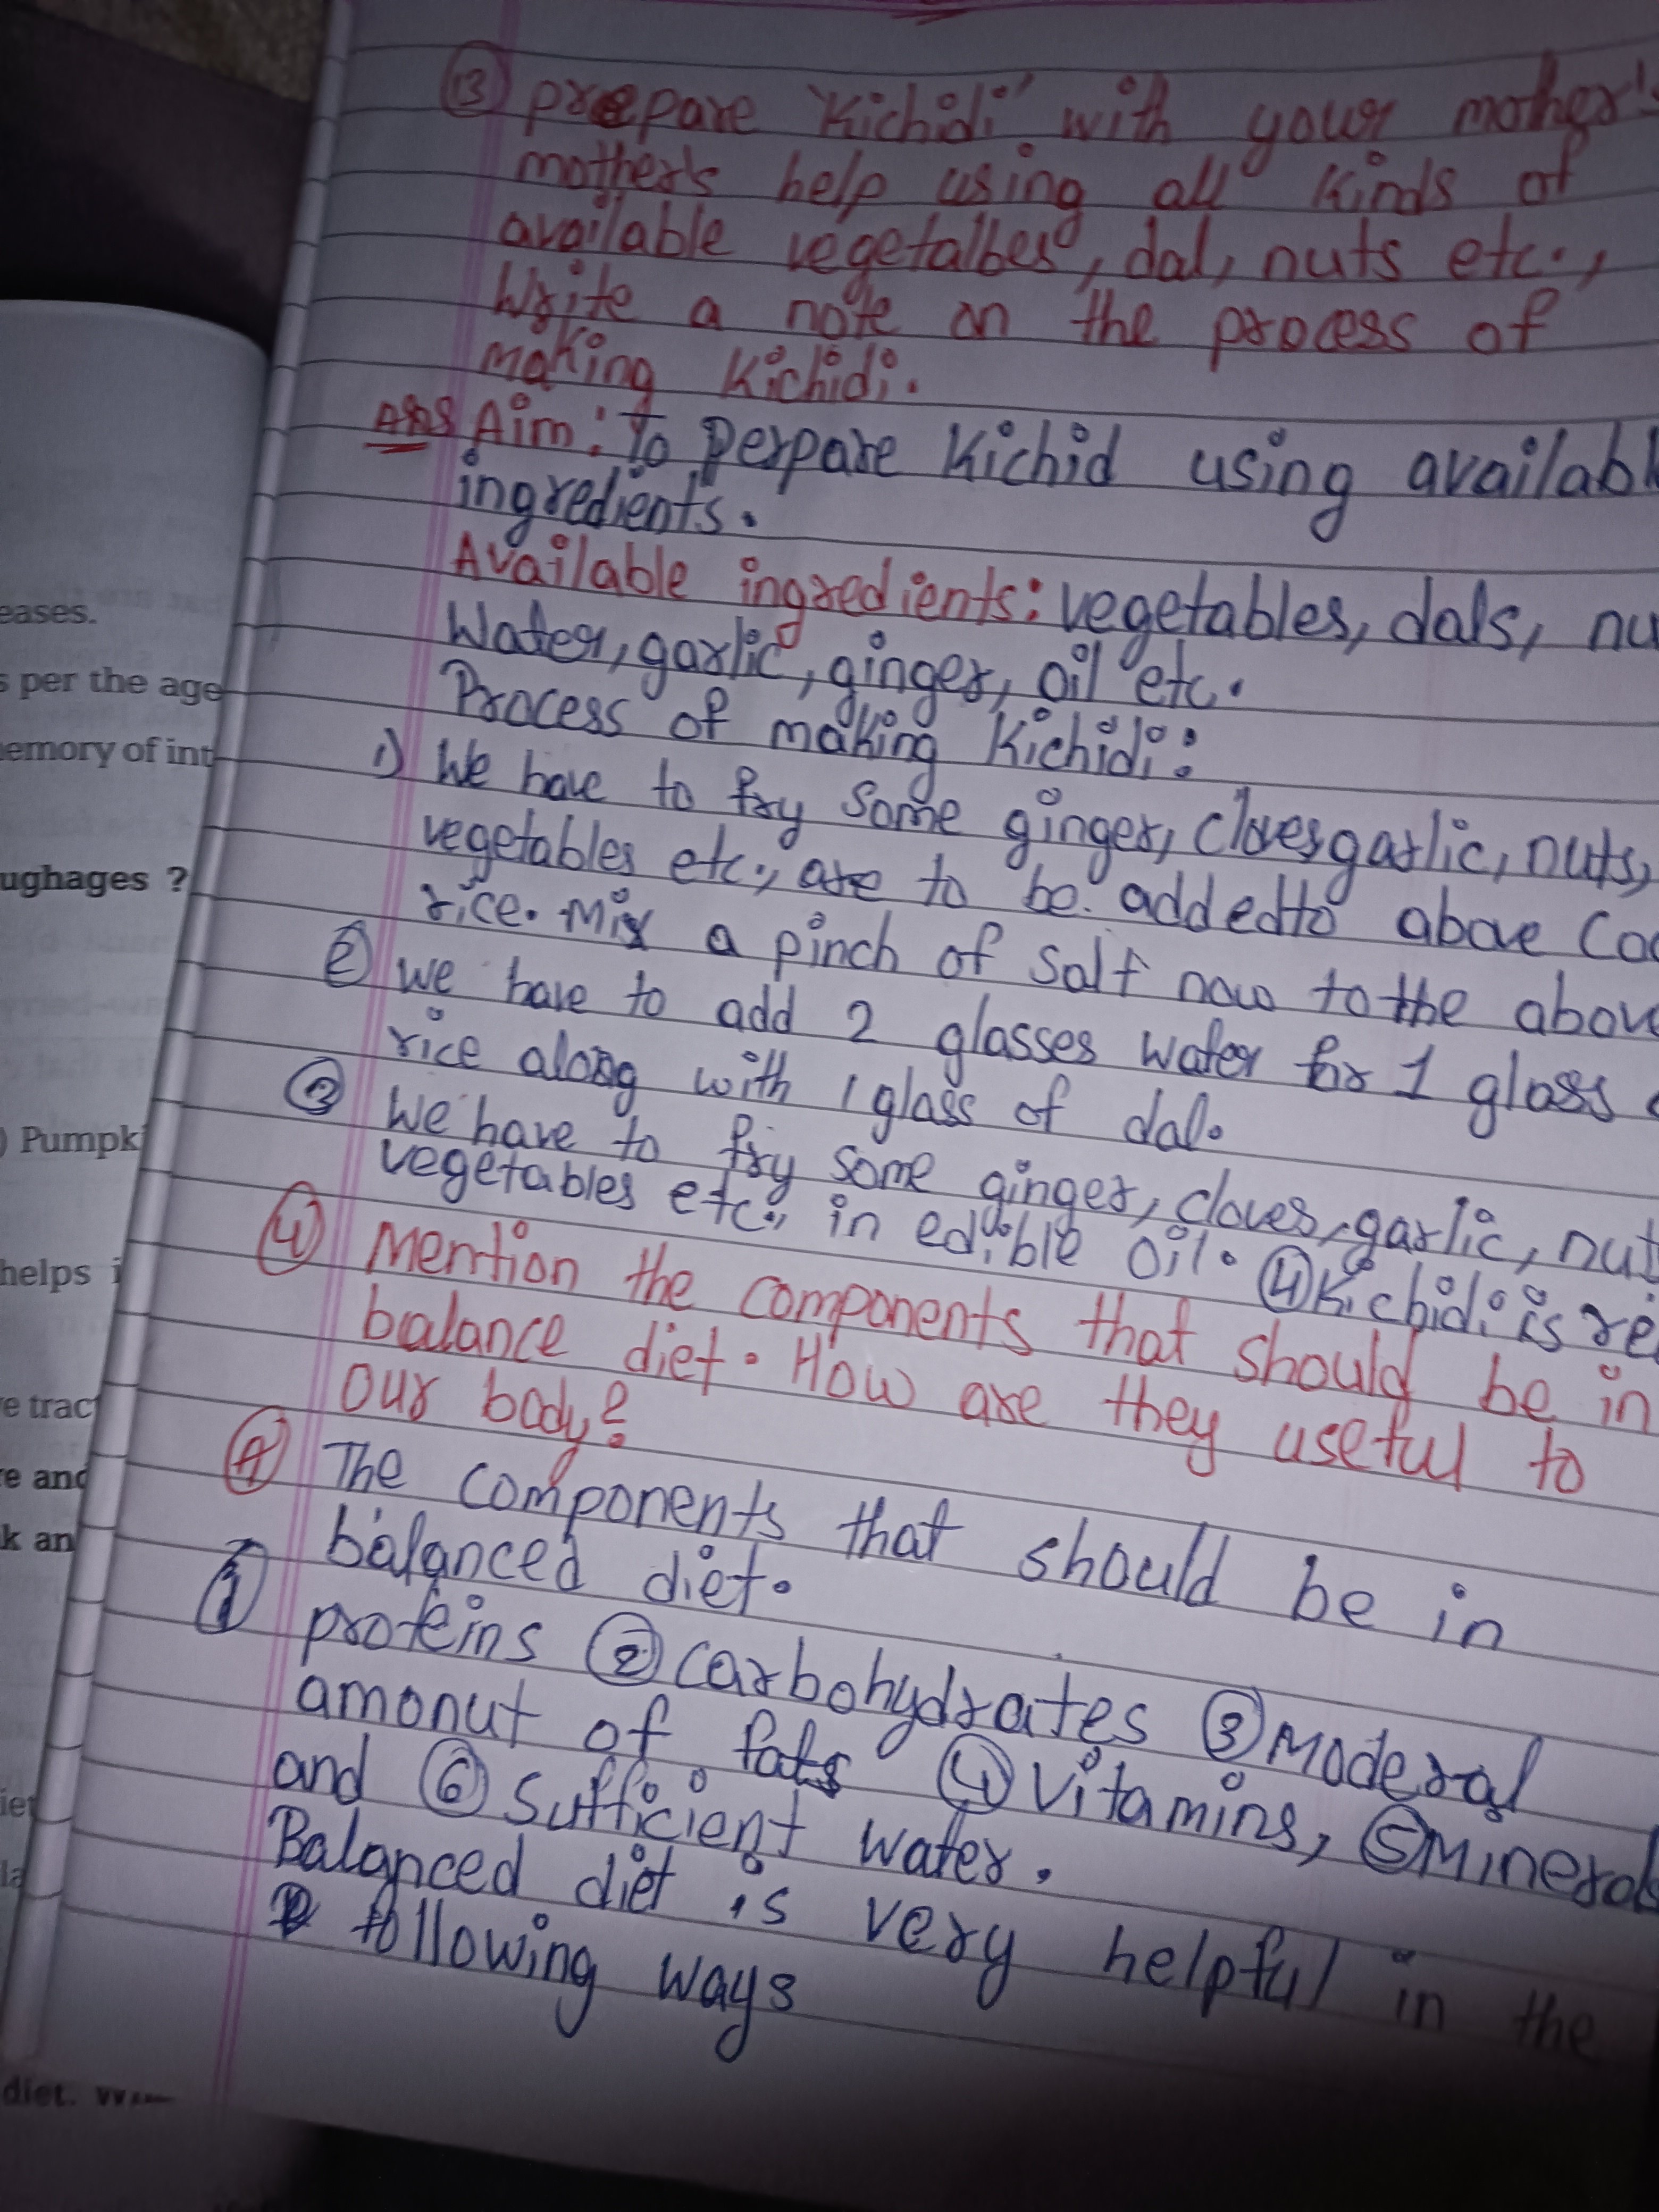 ⑬ prepare 'Kichidi' with your mother's
mother's help using all kinds of
available vegetalbes, dal, nuts etc.,
Write a note on the process of
making Kichidi.
Ans Aim: To Perpare Kichid using availabl
ingredients.
Available ingredients: vegetables, dals, nu
Water, garlic, ginger, oil etc.
Process of making Kichidi:
1) We have to fry some ginger, cloves garlic, nuts,
vegetables etc., are to be added to above Coo
rice. Mix a pinch of salt now to the above
② we have to add 2 glasses water for 1 glass
rice along with 1 glass of dal.
③ We have to fry some ginger, cloves, garlic, nut
vegetables etc., in edible oil. ④ Kichidi is re
④ Mention the components that should be in
balance diet. How are they useful to
our body?
Ⓐ The components that should be in
balanced diet.
① proteins ② carbohydrates ③ Moderal
amonut of fats ④ Vitamins, ⑤ Mineral
and ⑥ Sufficient water.
Balanced diet is very helpful in the
following ways
eases.
s per the age
emory of int
ughages ?
) Pumpki
helps i
e tract
e and
k an
diet.